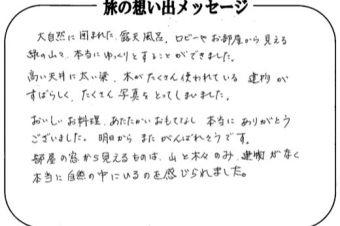 旅の想い出メッセージ
大自然に囲まれた露天風呂、ロビーやお部屋から見える
緑の山々、本当にゆっくりとすることができました。
高い天井に太い梁、木がたくさん使われている建物が
すばらしく、たくさん写真をとってしまいました。
おいしいお料理、あたたかいおもてなし 本当に ありがとう
ございました。明日から またがんばれそうです。
部屋の窓から見えるものは、山と木々のみ、建物がなく
本当に自然の中にいるのを感じられました。